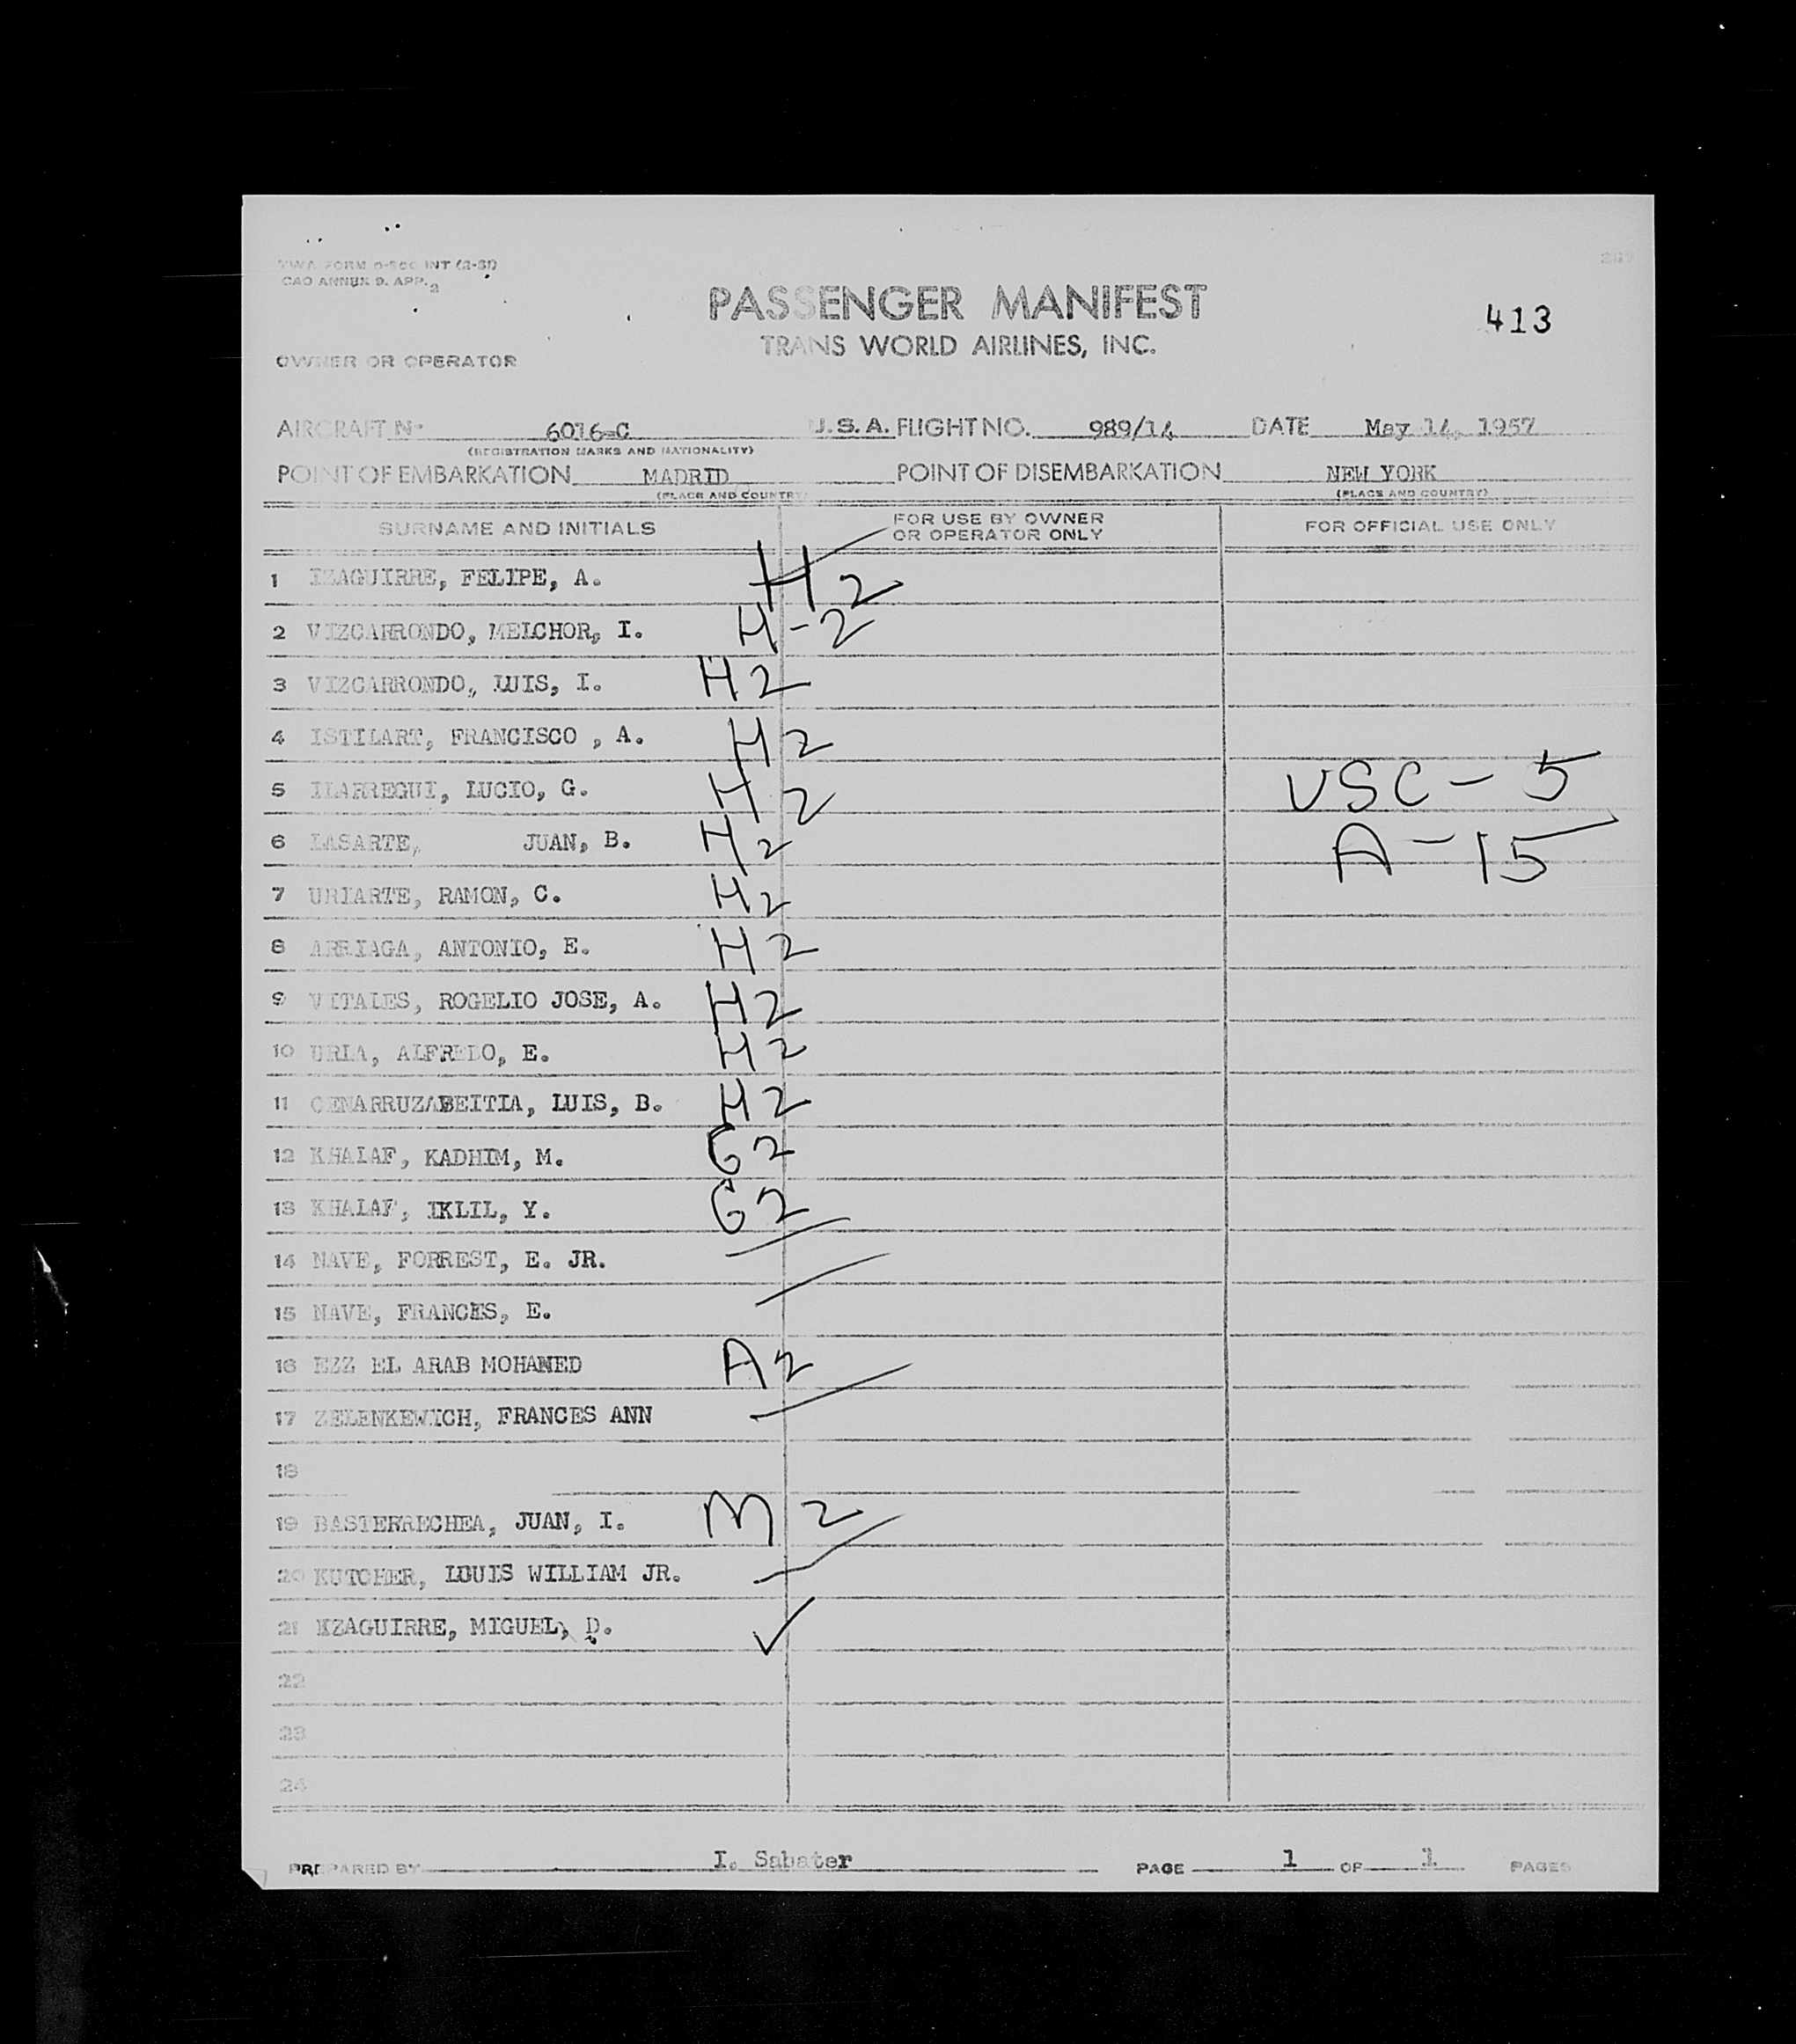 TWA FORM INT
CAO ANNEX 9. APP. 2
PASSENGER MANIFEST
413
TRANS WORLD AIRLINES, INC.
OWNER OR OPERATOR
AIRCRAFT Nº 6016-C U.S.A. FLIGHT NO. 989/14 DATE May 14, 1957
(REGISTRATION MARKS AND NATIONALITY)
POINT OF EMBARKATION MADRID POINT OF DISEMBARKATION NEW YORK
(PLACE AND COUNTRY) (PLACE AND COUNTRY)
SURNAME AND INITIALS FOR USE BY OWNER OR OPERATOR ONLY FOR OFFICIAL USE ONLY
1 IZAGUIRRE, FELIPE, A. H2
2 VIZCARRONDO, MELCHOR, I. H-2
3 VIZCARRONDO, LUIS, I. H2
4 ISTILART, FRANCISCO , A. H2
5 ILARREGUI, LUCIO, G. H2 USC - 5
6 LASARTE, JUAN, B. H2 A - 15
7 URIARTE, RAMON, C. H2
8 ARRIAGA, ANTONIO, E. H2
9 VITALES, ROGELIO JOSE, A. H2
10 URIA, ALFREDO, E. H2
11 CENARRUZABEITIA, LUIS, B. H2
12 KHALAF, KADHIM, M. G2
13 KHALAF, IKLIL, Y. G2
14 NAVE, FORREST, E. JR.
15 NAVE, FRANCES, E.
16 EZZ EL ARAB MOHAMED A2
17 ZELENKEWICH, FRANCES ANN
18
19 BASTERRECHEA, JUAN, I. M2
20 KUTCHER, LOUIS WILLIAM JR.
21 KZAGUIRRE, MIGUEL, D. ✓
22
23
24
PREPARED BY I. Sabater PAGE 1 OF 1 PAGES